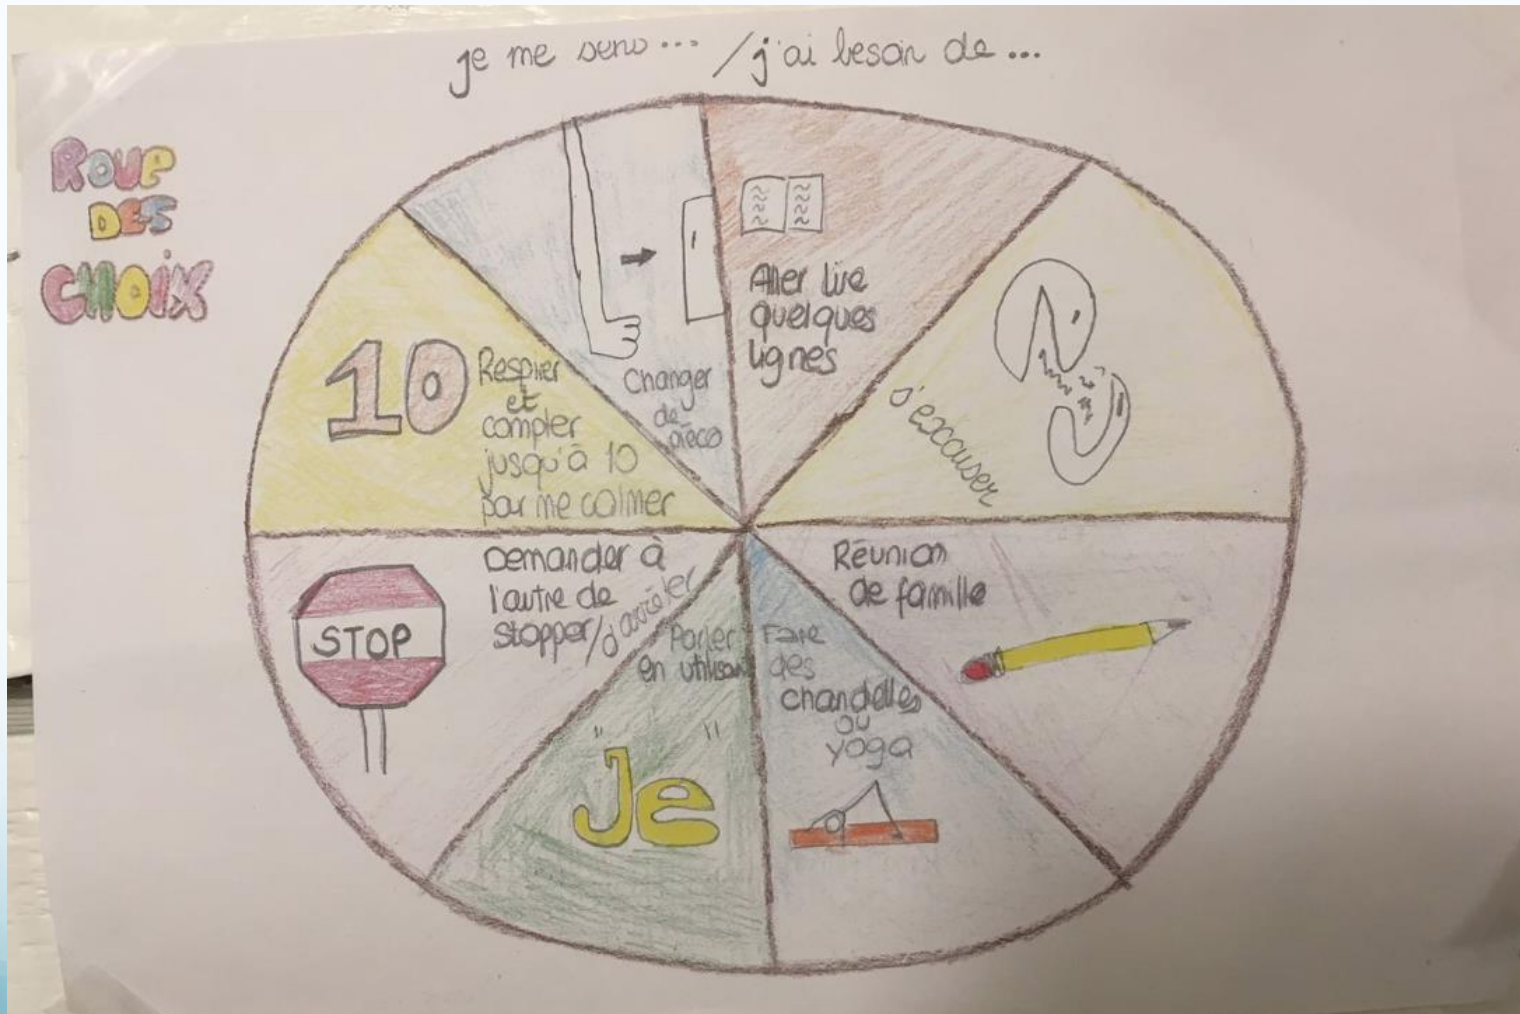 je me sens... / j'ai besoin de...
ROUE
DES
CHOIX
Aller lire
quelques
lignes
s'excuser
Réunion
de famille
Faire
des
chandelles
ou
yoga
Parler
en utilisant
"Je"
Demander à
l'autre de
stopper/d'arrêter
STOP
10
Respirer
et
compter
jusqu'à 10
pour me calmer
Changer
de
pièce